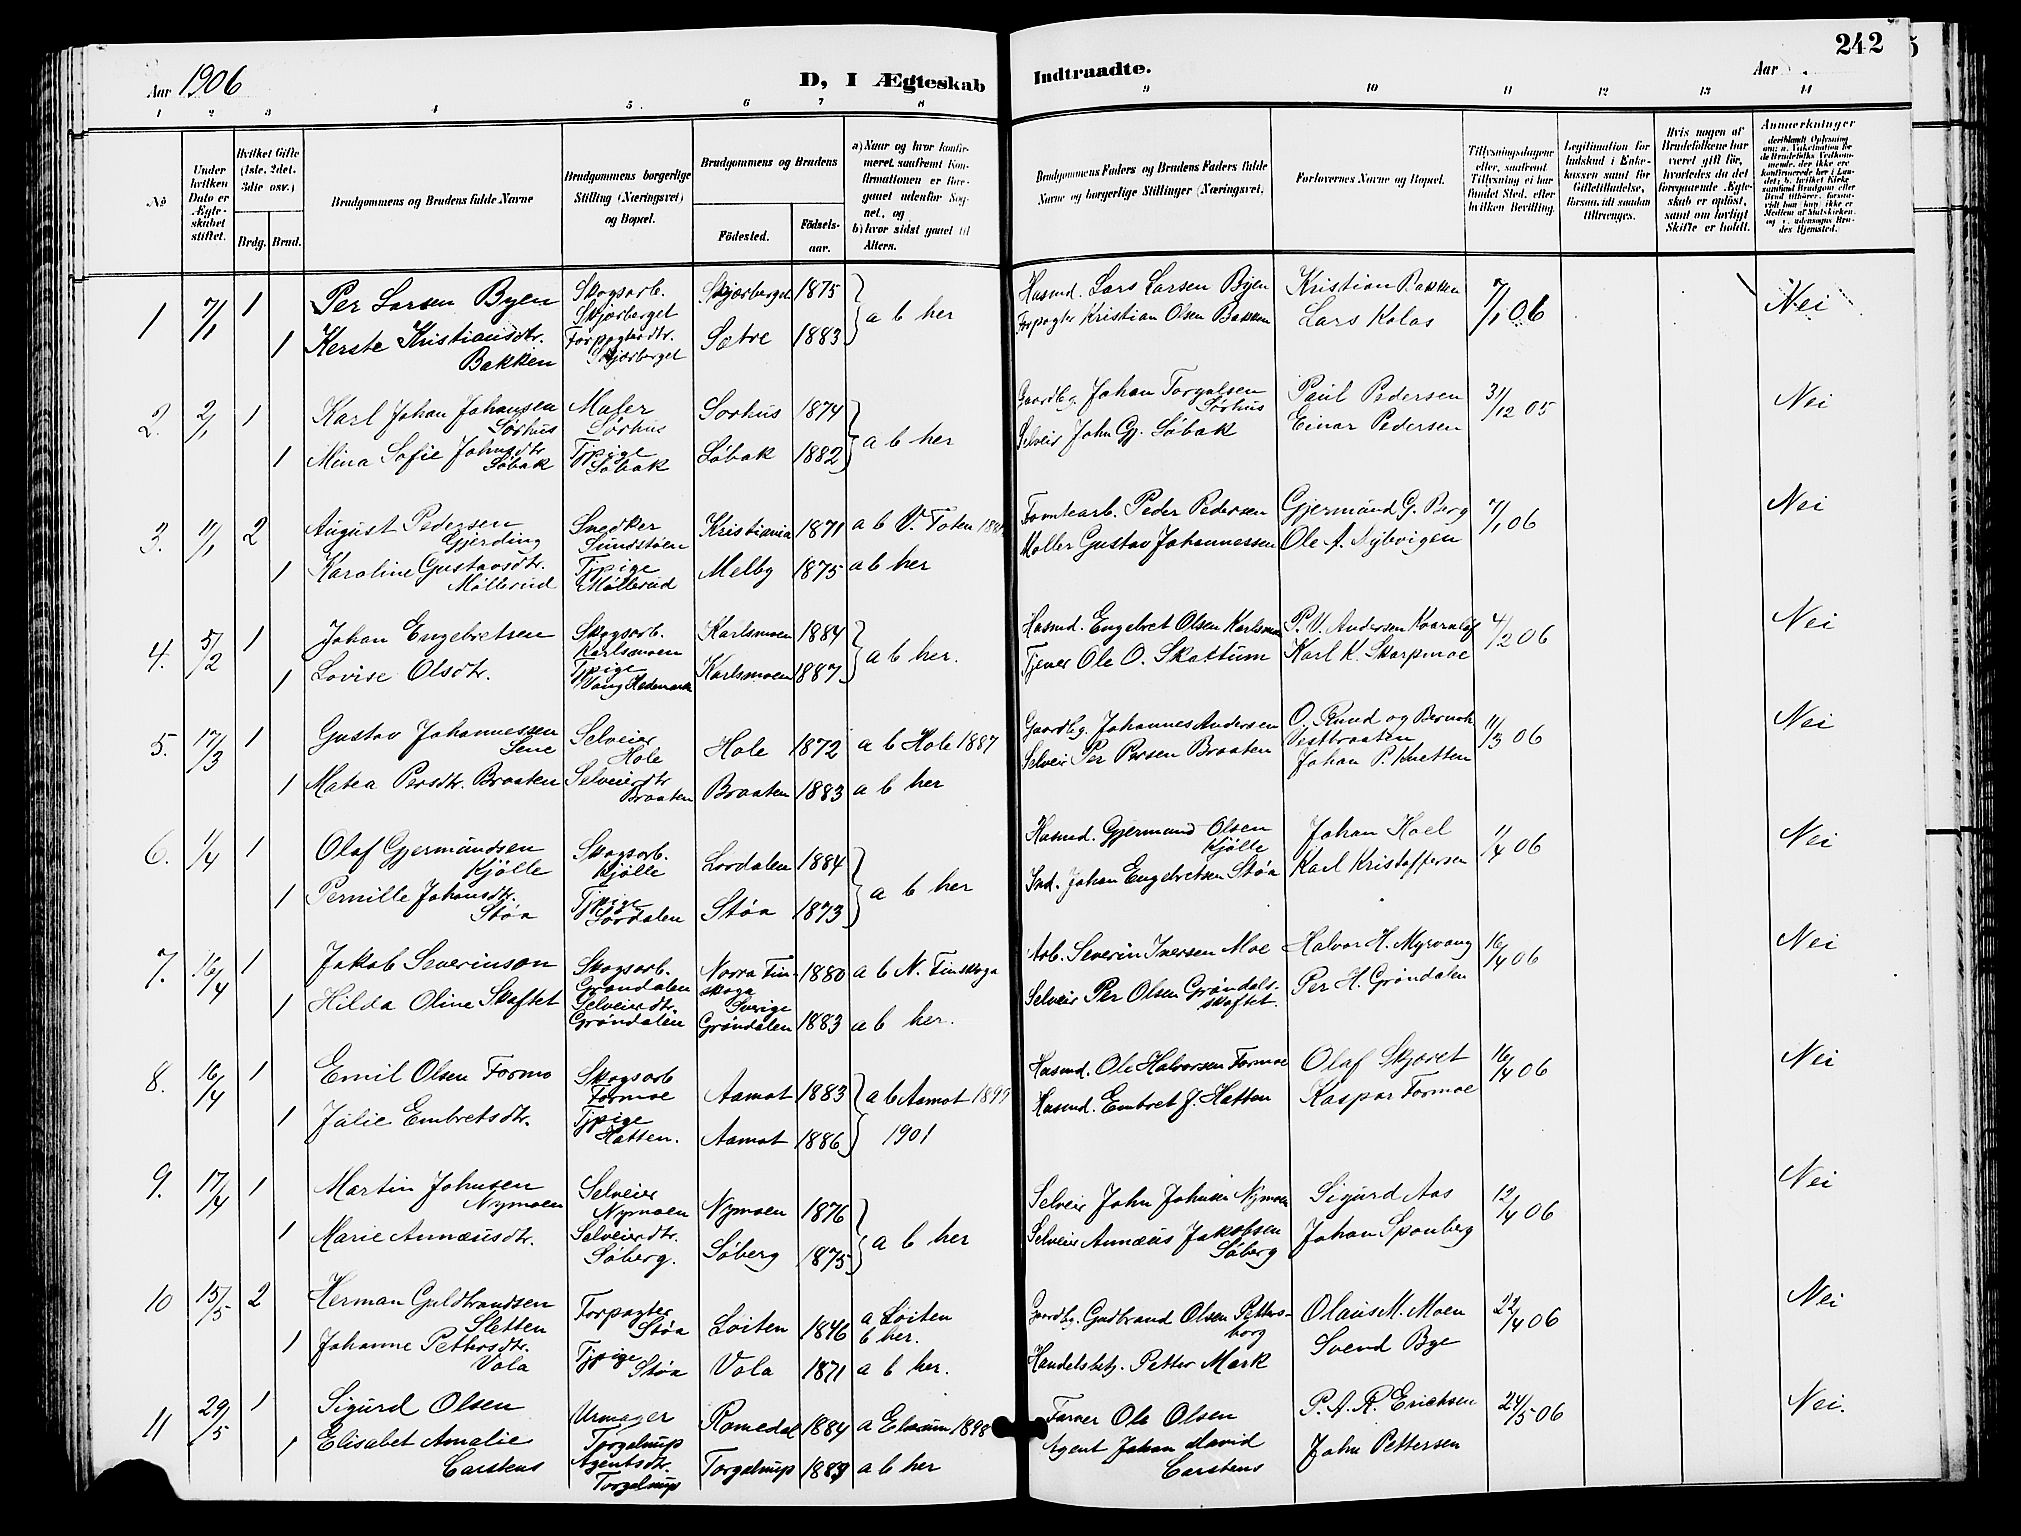 242
Aar 1906
D, I Ægteskab Indtraadte.
Aar
1 2 3 4 5 6 7 8 9 10 11 12 13 14
No
Under hvilken Dato er Ægteskabet stiftet.
Hvilket Gifte (1ste, 2det, 3die osv.)
Brdg. Brud.
Brudgommens og Brudens fulde Navne
Brudgommens borgerlige Stilling (Næringsvei) og Bopæl.
Brudgommens og Brudens
Födested.
Födselsaar.
a) Naar og hvor konfirmeret, saafremt Konfirmationen er foregaaet udenfor Sognet, og
b) hvor sidst gaaet til Alters.
Brudgommens Faders og Brudens Faders fulde Navne og borgerlige Stillinger (Næringsvei).
Forlovernes Navne og Bopæl.
Tillysningsdagene eller, saafremt Tillysning ei har fundet Sted, efter hvilken Bevilling.
Legitimation for Indskud i Enkekassen samt for Giftetilladelse, forsaavidt saadan tiltrænges.
Hvis nogen af Brudefolkene har været gift för, hvorledes da det foregaaende Ægteskab er oplöst, samt om lovligt Skifte er holdt.
Anmærkninger
1 7/1 1 Per Larsen Byen Skogsarb. Skjærberget Skjærberget 1875 a b her Husmd. Lars Larsen Byen Kristian Bakken 7/1 06 Nei
1 Kerste Kristiansdtr. Bakken Forpagterdtr. Skjærberget Sætre 1883 Forpagter Kristian Olsen Bakken Lars Kolos
2. 2/1 1 Karl Johan Johansen Sørhus Maler Sørhus Sørhus 1874 a b her Gaardbg. Johan Torgalsen Sørhus Paul Pedersen 31/12 05 Nei
1 Mina Sofie Johnsdtr. Søbak Tjpige Søbak Søbak 1882 Selveier John Gj. Søbak Einar Pedersen
3. 11/1 2 August Pedersen Gjerding Snedker Sundstøen Kristiania 1871 a b V. Toten Tomtearb. Peder Pedersen Gjermund G. Berg 7/1 06 Nei
1 Karoline Gustavsdtr. Møllerud Tjpige Møllerud Melby 1875 a b her Møller Gustav Johannessen Ole A. Nybvigen
4. 5/2 1 Johan Engebretsen Skogsarb. Karlsmoen Karlsmoen 1884 a b her. Husmd. Engebret Olsen Karlsmoen P. V. Andersen 4/2 06 Nei
1 Lovise Olsdtr. Tjpige Vang Hedemark Karlsmoen 1887 Tjener Ole O. Skattum Karl K. Skarpmoe
5. 17/3 1 Gustav Johannessen Sene Selveier Hole Hole 1872 a b Hole 1887 Gaardbg. Johannes Andersen O. Rund og Bernh. Vestbraaten 11/3 06 Nei
1 Matea Persdtr. Braaten Selveierdtr. Braaten Braaten 1883 a b her Selveier Per Persen Braaten Johan P. Knetten
6. 1/4 1 Olaf Gjermundsen Kjølle Skogsarb. Kjølle Lørdalen 1884 a b her Husmd. Gjermund Olsen Kjølle Johan Hoel 1/4 06 Nei
1 Pernille Johansdtr. Støa Tjpige Lørdalen Støa 1873 Ind. Johan Engebretsen Støa Karl Kristoffersen
7. 16/4 1 Jakob Severinson Skogsarb. Grøndalen Norra Finskoga Sverige 1880 a b N. Finskoga Arb. Severin Iversen Moe Halvor H. Myrvang 16/4 06 Nei
1 Hilda Oline Skaftet Selveierdtr. Grøndalen Grøndalen 1883 a b her. Selveier Per Olsen Grøndalsskaftet. Per H. Grøndalen
8. 16/4 1 Emil Olsen Formo Skogsarb Formoe Aamot 1883 a b Aamot 1899 Husmd. Ole Halvorsen Formoe Olaf Skjæret 16/4 06 Nei
1 Julie Embretsdtr. Tjpige Hatten. Aamot 1886 1901 Husmd. Embret J. Hatten Kaspar Formoe
9. 17/4 1 Martin Johnsen Nymoen Selveier Nymoen Nymoen 1876 a b her Selveier John Johnsen Nymoen Sigurd Aas 12/4 06 Nei
1 Marie Annæusdtr. Selveierdtr. Søberg. Søberg 1875 Selveier Annæus Jakobsen Søberg Johan Sponberg
10 15/5 2 Herman Guldbrandsen Sletten Forpagter Støa Løiten 1846 a Løiten b her. Gaardbg. Gudbrand Olsen Pettersborg Olaus M. Moen 22/4 06 Nei
1 Johanne Pettersdtr. Vola Tjpige Støa Vola 1871 a b her. Handelsbetj. Petter Mørk Svend Bye
11 29/5 1 Sigurd Olsen Urmager Torgalrup Romedal 1884 a Elverum 1898 Farver Ole Olsen P. A. R. Erichsen 24/5 06 Nei.
1 Elisabet Amalie Carstens Agentsdtr. Torgalrup Torgalrup 1883 a b her Agent Johan David Carstens John Pettersen